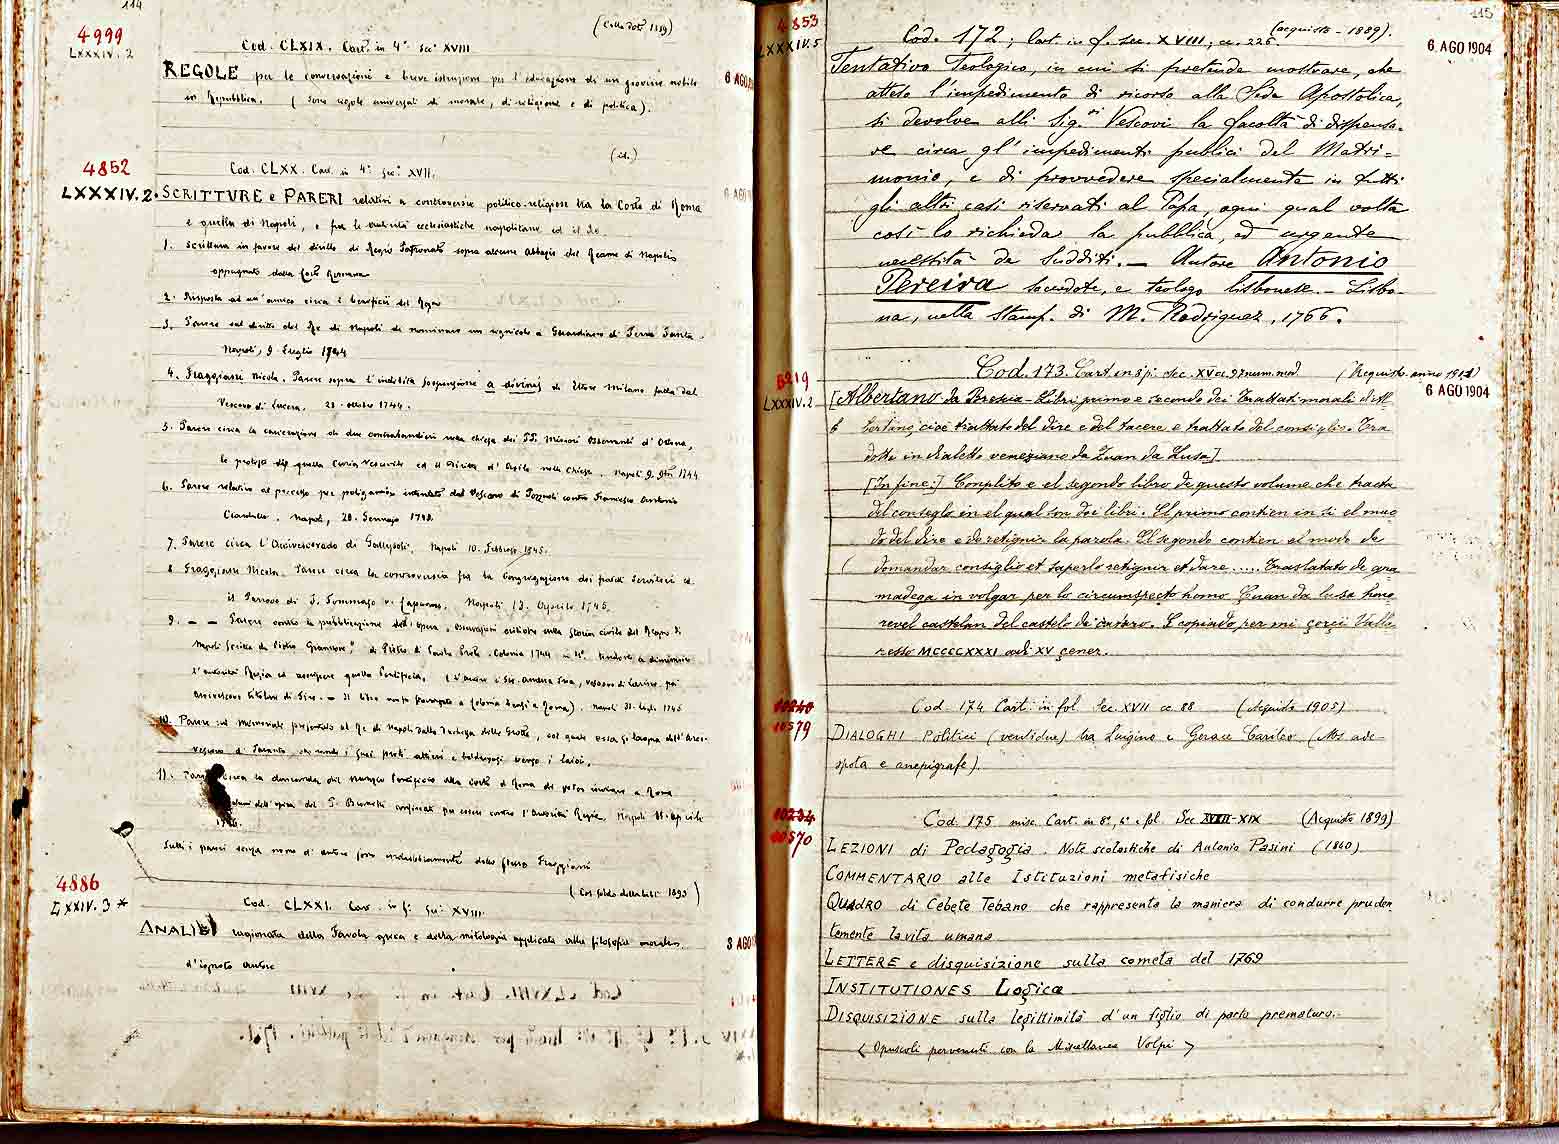 114
4999
LXXXIV. 2
Cod. CLXIX. Cart. in 4° Sec° XVIII
REGOLE per le conversazioni e breve istruzione per l'educazione di un giovine nobile
in Repubblica. ( Sono regole universali di morale, di religione e di politica).
6 AGO
4852
LXXXIV. 2.
(id.)
Cod. CLXX. Cart. in 4° Sec° XVII.
SCRITTURE e PARERI relativi a controversie politico-religiose tra la Corte di Roma
e quella di Napoli, e fra le autorità ecclesiastiche napolitane ed il Re.
1. Scrittura in favore del diritto di Regio Patronato sopra alcune Abbazie del Reame di Napoli
oppugnato dalla Corte Romana
2. Risposta ad un'amico circa i beneficii del Regno
3. Parere sul diritto del Re di Napoli di nominare un Guardiano di Terra Santa.
Napoli, 9 Luglio 1744
4. Fraggianni Nicola. Parere sopra l'indebita sospensione a divinis di Ettore Milano fatta dal
Vescovo di Lucera. 23 ottobre 1744.
5. Parere circa la carcerazione di due contrabandieri nella chiesa dei PP. Minori Osservanti d'Ortona,
le proteste di quella Curia Vescovile ed il Diritto d'Asilo nelle Chiese. Napoli 9 1744
6. Parere relativo al processo per poligamia intentato dal Vescovo di Pozzuoli contro Francesco Antonio
Napoli, 28 Gennajo
7. Parere circa l'Arcivescovado di Gallipoli. Napoli 10. Febbrajo 1745.
8 Fraggianni Nicola. Parere circa la controversia fra la Congregazione dei fratelli Servitori ed
il Parroco di S. Tommaso a Capuana. Napoli 13. Agosto 1745.
9. — — Parere contro la pubblicazione dell'opera, Osservazioni critiche sulla Storia civile del Regno di
Napoli scritta da Pietro Giannone" di Pietro di Paolo Colonia 1744 in 4° tendente a diminuire
l'autorità Regia ed accrescere quella Pontificia. (L'autore è vescovo di poi
Arcivescovo titolare di Napoli 31 luglio 1745
10. Parere sul memoriale presentato al Re di Napoli dalla Duchessa delle Grotte, col quale essa si lagna dell'Arci-
vescovo di Taranto che rende i suoi preti altieri e baldanzosi verso i laici.
11. Parere circa la domanda del Nunzio Pontificio alla corte di Roma di poter inviare a Roma
dell'opera del P. confiscati per essere contro l'Autorità Regia. Napoli 11 aprile
Tutti i pareri senza nome d'autore sono indubbiamente dello stesso Fraggianni
4886
LXXIV. 3 *
Cod. CLXXI. Cart. in f° Sec° XVIII.
ANALISI ragionata della Favola greca e della mitologia applicata alla filosofia morale.
d'ignoto autore
3 AGO
115
4853
LXXXIV. 5
Cod. 172; Cart. in f. sec. XVIII; cc. 226. (acquisto - 1889).
6 AGO 1904
Tentativo Teologico, in cui si pretende mostrare, che
atteso l'impedimento di ricorso alla Sede Apostolica,
si devolve alli Sig.ri Vescovi la facoltà di dispensa-
re circa gl'impedimenti publici del Matri=
monio, e di provvedere specialmente in tutti
gli altri casi riservati al Papa, ogni qual volta
così lo richieda la pubblica, ed urgente
necessità de' Sudditi. — Autore Antonio
Pereira sacerdote, e teologo lisbonese. — Lisbo-
na, nella stamp. di M. Rodriguez, 1766.
6219
LXXXIV. 2
Cod. 173. Cart. in 8°; sec. XV cc. 97 num. mod. (Acquisto anno 1902)
6 AGO 1904
[Albertano da Brescia - Libri primo e secondo dei Trattati morali di Al-
bertino, cioè trattato del dire e del tacere e trattato del consiglio. Tra
dotto in dialetto veneziano da Zuan da Lusa]
[In fine:] Conplito e el segondo libro de questo volume che tracta
del conseglo in el qual son doi libri. El primo contien in si el muo
do del dire e de retignir la parola. El segondo contien el modo de
domandar consiglio et saperlo retignir et dare ..... Traslatato de gra
madega in volgar per lo circumspecto homo Çuan da lusa hono
revel castelan del castelo de cararo. E copiado per mi çorçi Valla
resso MCCCCXXXI adi XV çener.
10240
10579
Cod. 174 Cart. in fol. Sec. XVII cc 88 (Acquisto 1905)
DIALOGHI Politici (ventidue) tra Luigino e Gerace Carileo (Ms. ade-
spota e anepigrafe).
10234
10570
Cod. 175 misc. Cart. in 8°, 4° e fol. Sec XVIII-XIX (Acquisto 1899)
LEZIONI di Pedagogia. Note scolastiche di Antonio Pasini (1840)
COMMENTARIO alle Istituzioni metafisiche
QUADRO di Cebete Tebano che rappresenta la maniera di condurre pruden
temente la vita umana
LETTERE e disquisizione sulla cometa del 1769
INSTITUTIONES Logicæ
DISQUISIZIONE sulla legittimità d'un figlio di parto prematuro.
< Opuscoli pervenuti con la Miscellanea Volpi >